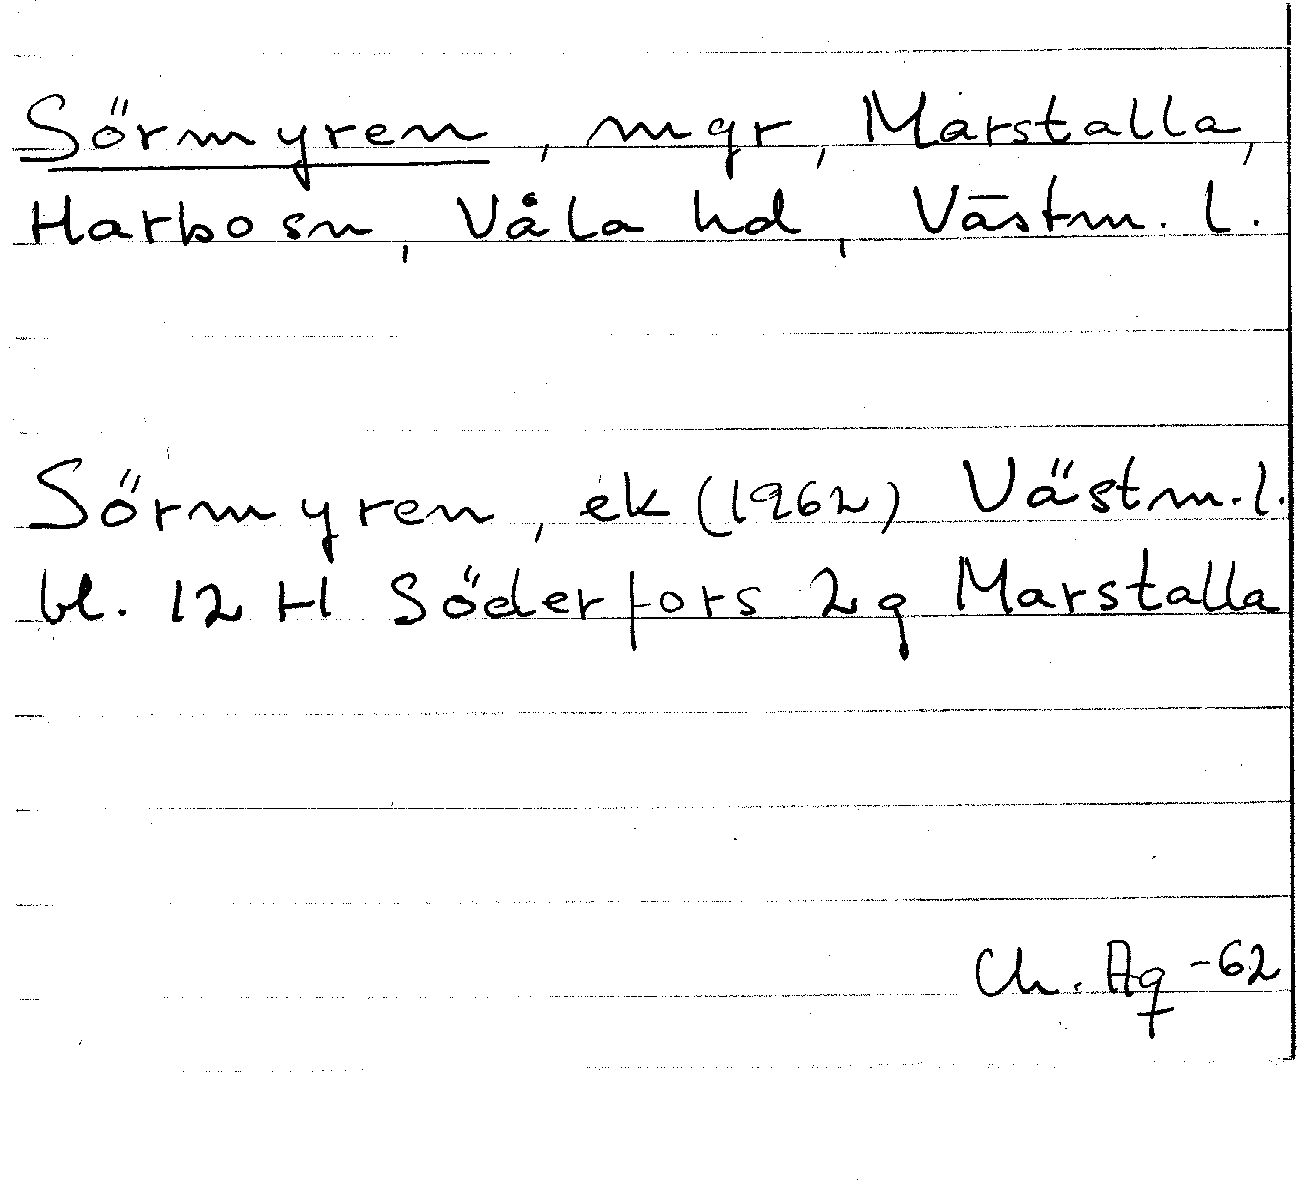 Sörmyren, mgr, Marstalla,
Harbosn, Våla hd, Västm. l.
Sörmyren, ek (1962) Västm. l.
bl. 12 H Söderfors 2g Marstalla
Ch. Ag -62